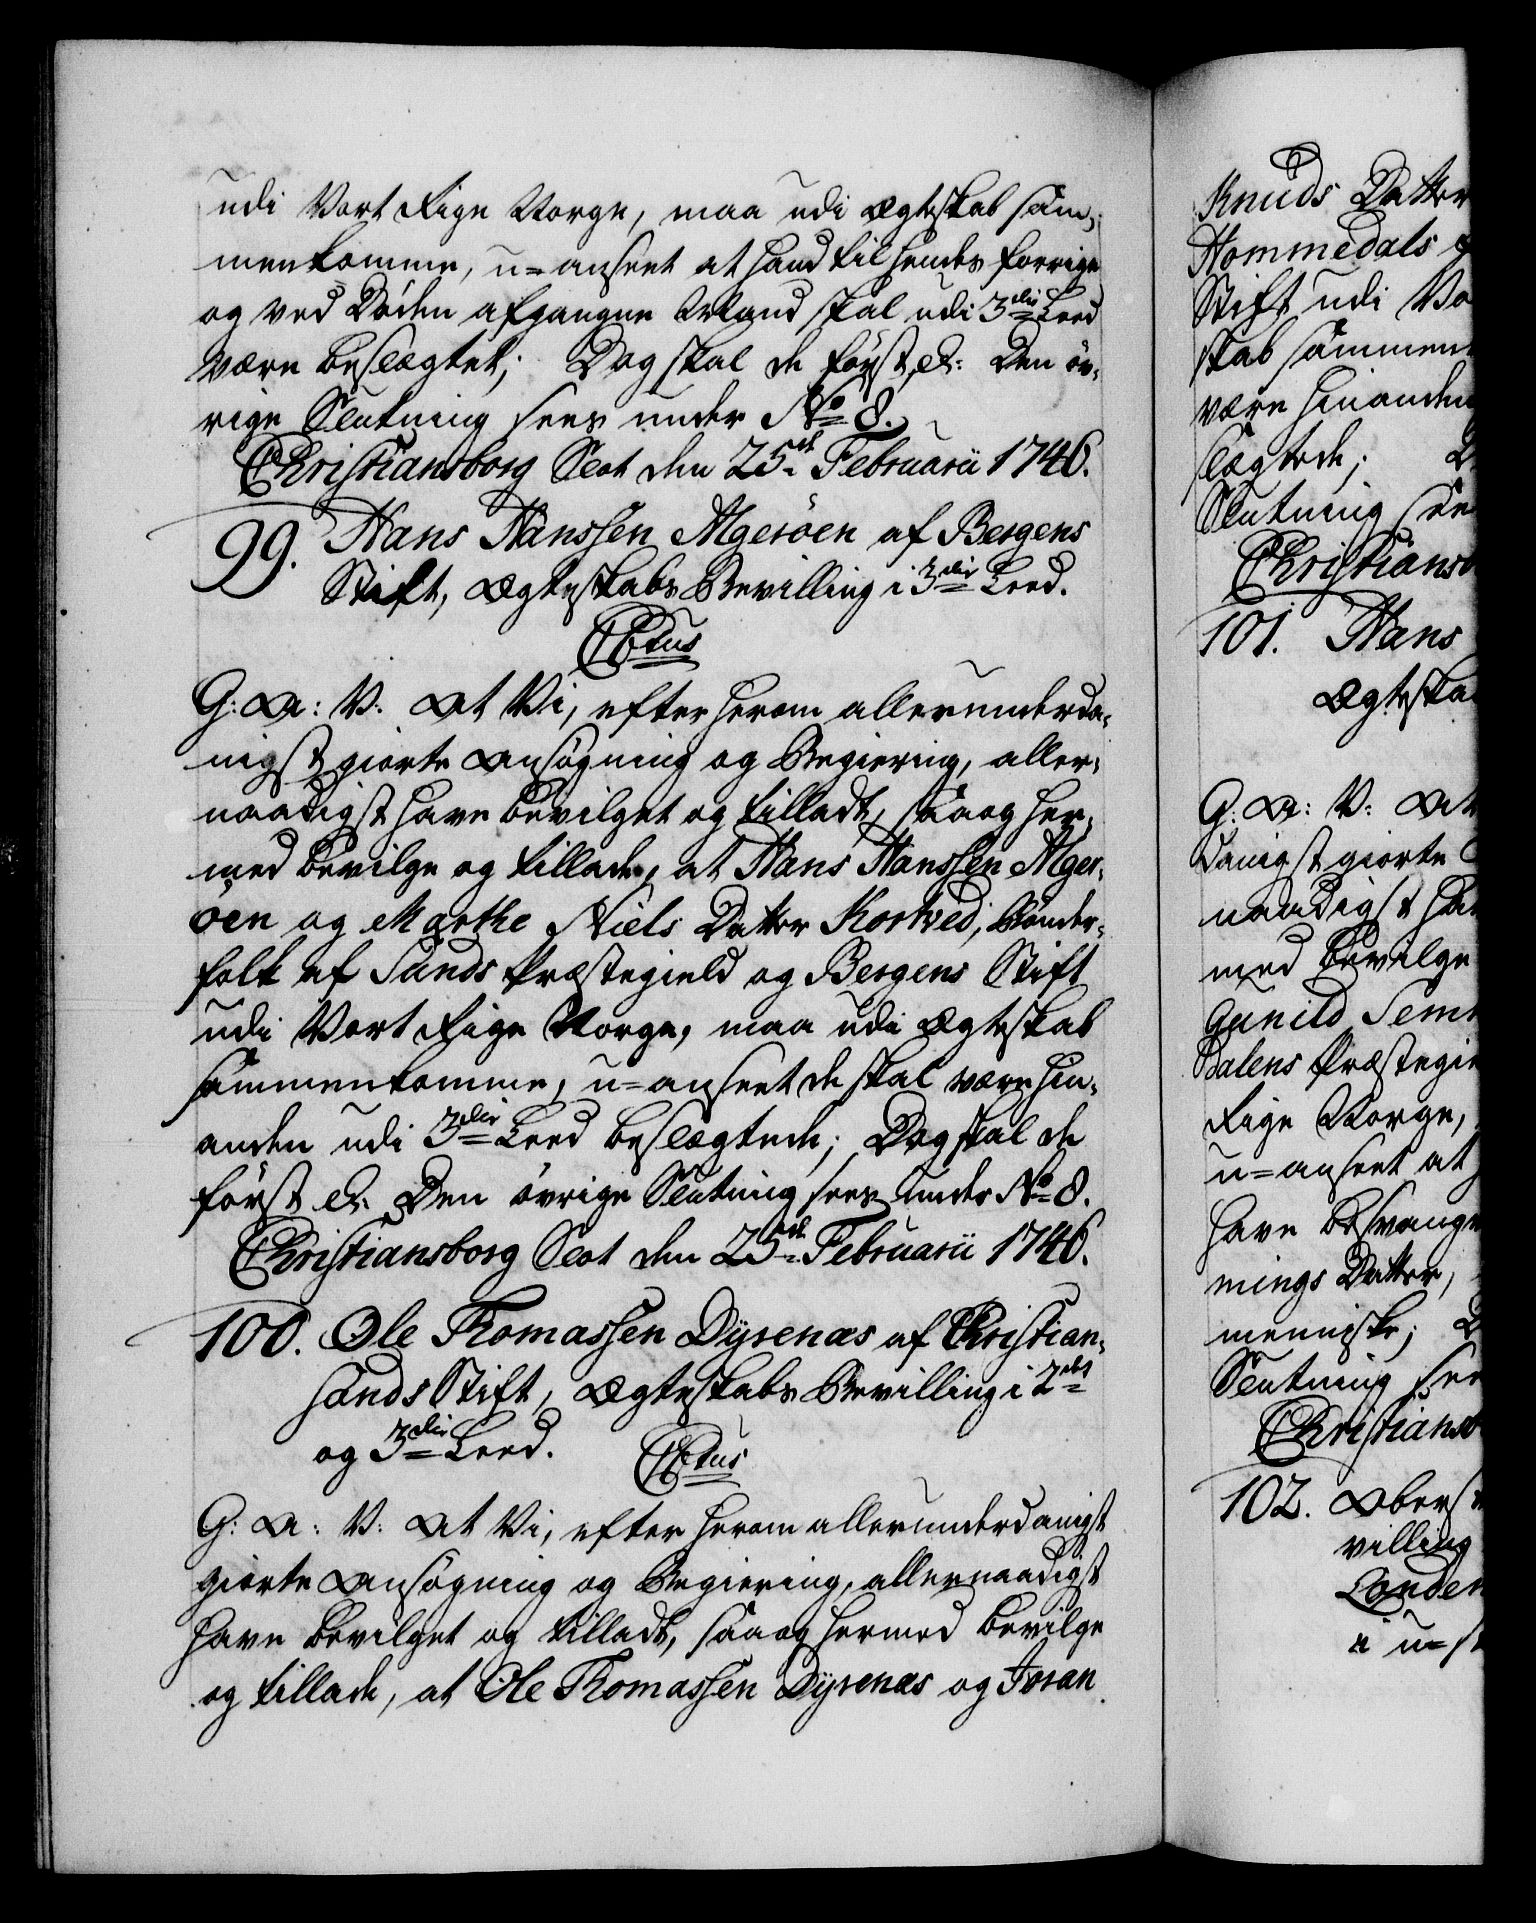 udi Vort Rige Norge, maa udi Ægteskab sam-
menkomme, u-anseet at hand til hendes forrige
og ved Døden afgangne Mand skal udi 3die Leed
være beslægtet; Dog skal de først, &: Den öv-
rige Slutning sees under No 8.
Christiansborg Slot den 25de Februarii 1746.
99. Hans Hanssen Algeröen af Bergens
Stift, Ægteskabs Bevilling i 3die Leed.
C6tus
G: A: V: At Vi, efter herom allerunderda-
nigst giorte Ansøgning og Begiering, aller-
naadigst have bevilget og tilladt, saa og her-
med bevilge og tillade, at Hans Hanssen Alger-
öen og Marthe Niels Datter Kortved, Bönder-
folk af Sunds Præstegield og Bergens Stift
udi Vort Rige Norge, maa udi Ægteskab
sammenkomme, u-anseet de skal være hin-
anden udi 3die Leed beslægtede; Dog skal de
først &: Den övrige Slutning sees under No 8.
Christiansborg Slot den 25de Februarii 1746.
100. Ole Thomassen Dyrenæs af Christian-
sands Stift, Ægteskabs Bevilling i 2det
og 3die Leed.
C6tus
G: A: V: At Vi, efter herom allerunderdanigst
giorte Ansøgning og Begiering, allernaadigst
have bevilget og tilladt, saa og hermed bevilge
og tillade, at Ole Thomassen Dyrenæs og Joran
Knuds Datter
Hommedals
Stift udi Vo
skab sammen
være hinanden
slægtede; D
Slutning see
Christiansb
101. Hans
Ægteska
G: A: V: At
danigst giorte
naadigst ha
med bevilge
Gunild Sem
dalens Præstegie
Rige Norge,
u-anseet at
have besvange
mings Datter,
menniske; D
Slutning see
Christiansb
102. Oberst
villing
Londen
i u-s